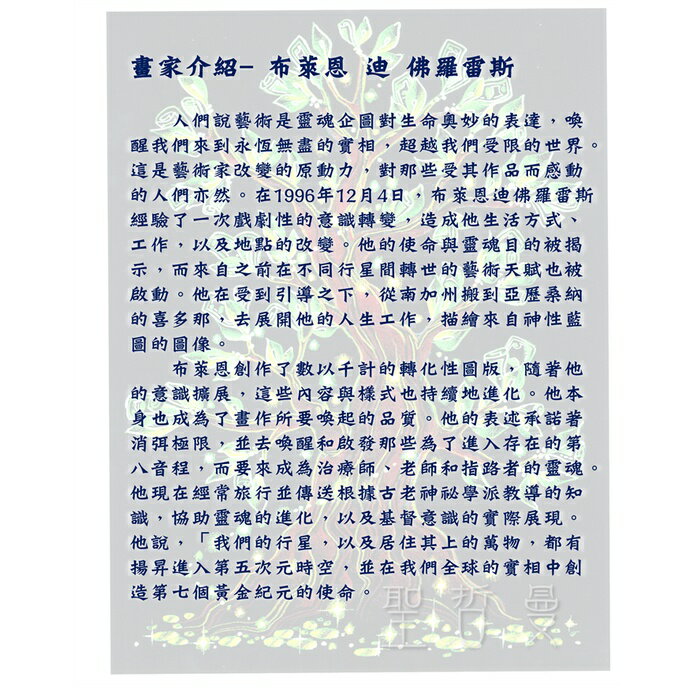 畫家介紹– 布萊恩 迪 佛羅雷斯
人們說藝術是靈魂企圖對生命奧妙的表達，喚
醒我們來到永恆無盡的實相，超越我們受限的世界。
這是藝術家改變的原動力，對那些受其作品而感動
的人們亦然。在1996年12月4日，布萊恩迪佛羅雷斯
經驗了一次戲劇性的意識轉變，造成他生活方式、
工作，以及地點的改變。他的使命與靈魂目的被揭
示，而來自之前在不同行星間轉世的藝術天賦也被
啟動。他在受到引導之下，從南加州搬到亞歷桑納
的喜多那，去展開他的人生工作，描繪來自神性藍
圖的圖像。
布萊恩創作了數以千計的轉化性圖版，隨著他
的意識擴展，這些內容與樣式也持續地進化。他本
身也成為了畫作所要喚起的品質。他的表述承諾著
消弭極限，並去喚醒和啟發那些為了進入存在的第
八音程，而要來成為治療師、老師和指路者的靈魂。
他現在經常旅行並傳送根據古老神祕學派教導的知
識，協助靈魂的進化，以及基督意識的實際展現。
他說，「我們的行星，以及居住其上的萬物，都有
揚昇進入第五次元時空，並在我們全球的實相中創
造第七個黃金紀元的使命。
聖哲曼